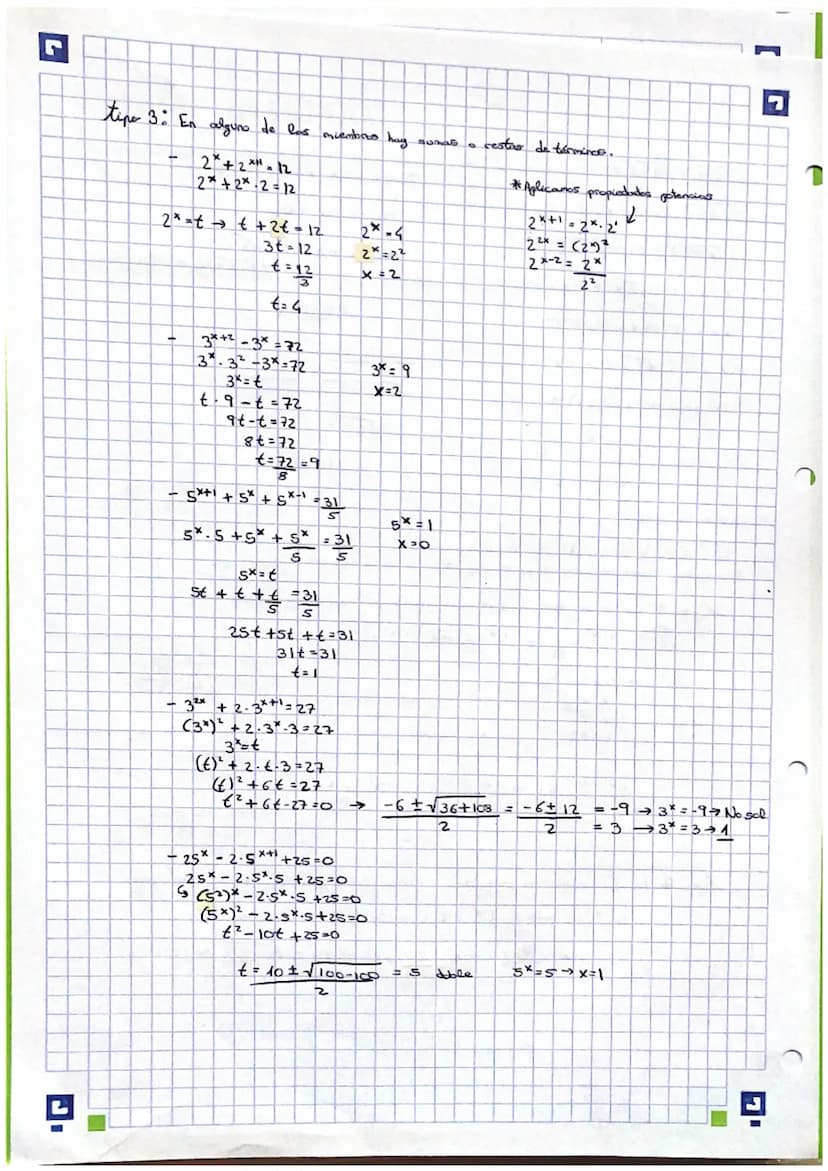 tipo 3: En alguno de los miembros hay sumas o restas de términos.
- 2^x + 2^(x+1) = 12
2^x + 2^x · 2 = 12
2^x = t → t + 2t = 12
3t = 12
t = 12/3
t = 4
2^x = 4
2^x = 2^2
x = 2
* Aplicamos propiedades potencias
2^(x+1) = 2^x · 2^1
2^(2x) = (2^x)^2
2^(x-2) = 2^x/2^2
- 3^(x+2) - 3^x = 72
3^x · 3^2 - 3^x = 72
3^x = t
t · 9 - t = 72
9t - t = 72
8t = 72
t = 72/8 = 9
3^x = 9
x = 2
- 5^(x+1) + 5^x + 5^(x-1) = 31/5
5^x · 5 + 5^x + 5^x/5 = 31/5
5^x = t
5t + t + t/5 = 31/5
25t + 5t + t = 31
31t = 31
t = 1
5^x = 1
x = 0
- 3^(2x) + 2 · 3^(x+1) = 27
(3^x)^2 + 2 · 3^x · 3 = 27
3^x = t
(t)^2 + 2 · t · 3 = 27
(t)^2 + 6t = 27
t^2 + 6t - 27 = 0 → (-6 ± √(36+108))/2 = (-6 ± 12)/2 = -9 → 3^x = -9 → No sol
= 3 → 3^x = 3 → 1
- 25^x - 2 · 5^(x+1) + 25 = 0
25^x - 2 · 5^x · 5 + 25 = 0
↳ (5^2)^x - 2 · 5^x · 5 + 25 = 0
(5^x)^2 - 2 · 5^x · 5 + 25 = 0
t^2 - 10t + 25 = 0
t = (10 ± √(100-100))/2 = 5 doble 5^x = 5 → x = 1